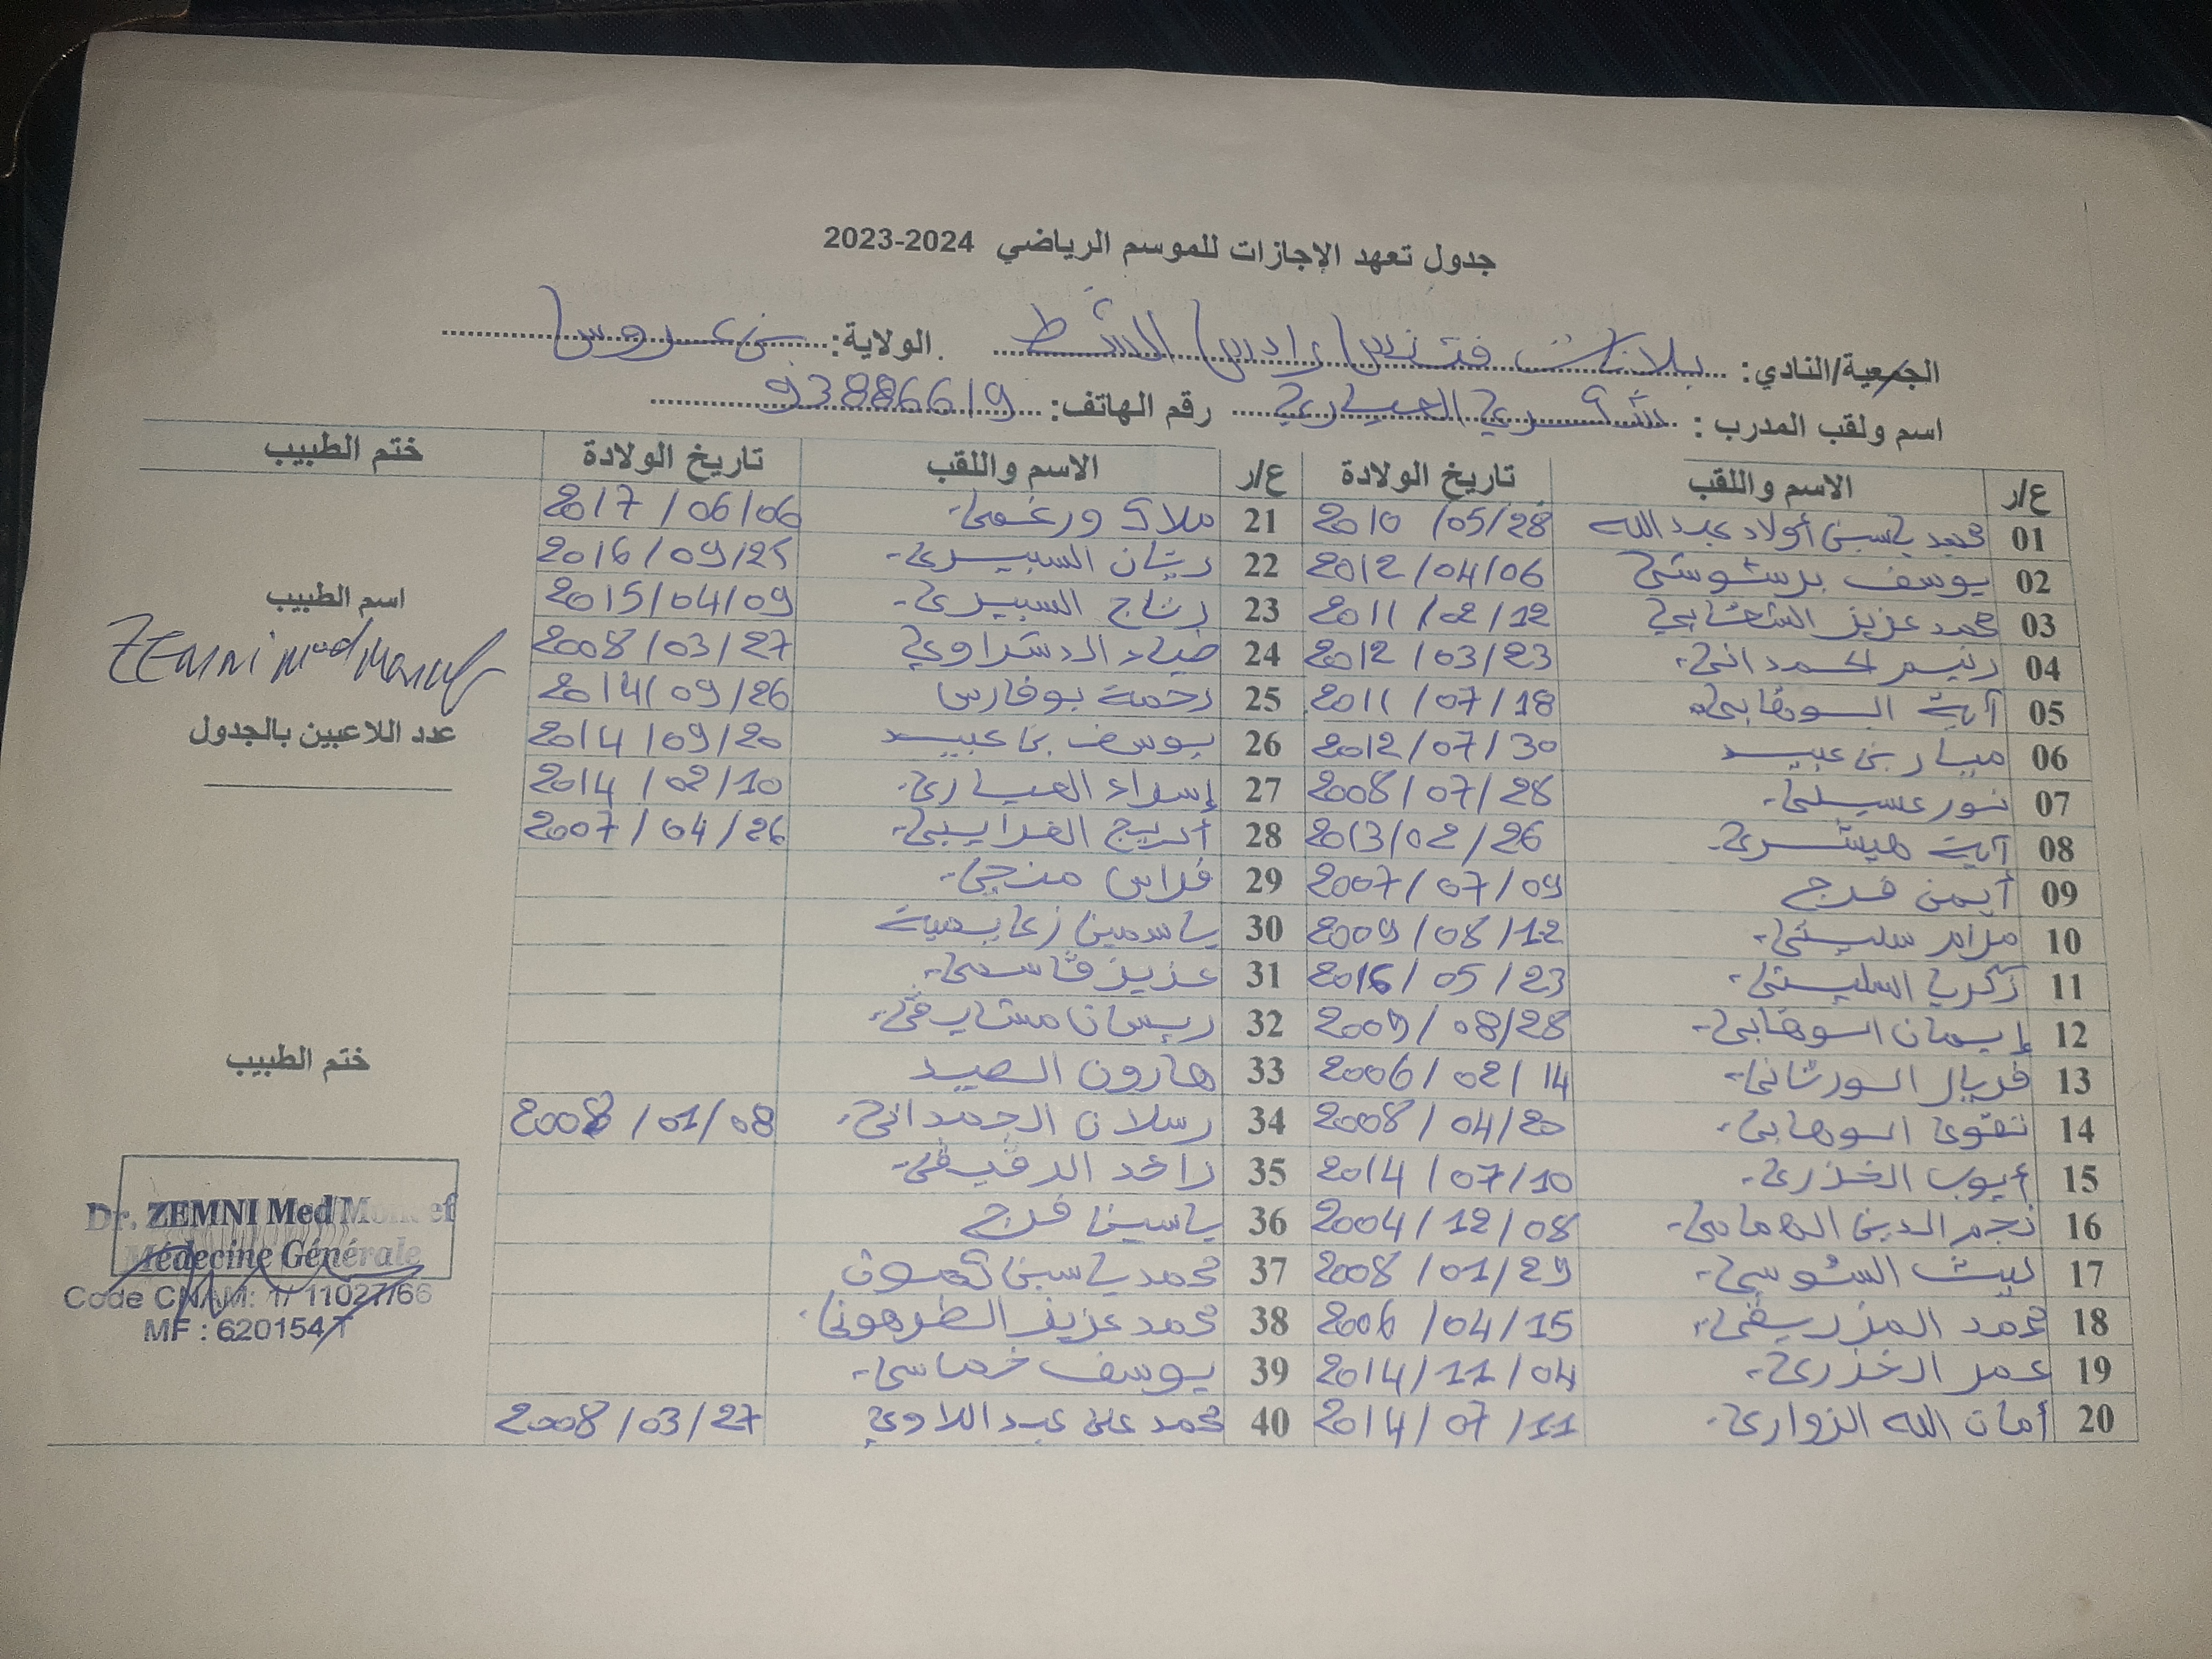 جدول تعهد الإجازات للموسم الرياضي 2023-2024
الجمعية/النادي: بلانات فتنس رادس الشط الولاية: بن عروس
اسم ولقب المدرب : شكري العياري رقم الهاتف: 93886619
ع/ر الاسم واللقب تاريخ الولادة ع/ر الاسم واللقب تاريخ الولادة ختم الطبيب
01 محمد ياسين أولاد عبد الله 2010 /05/28 21 ملاك ورغمي 2017 /06/06
02 يوسف برشوشي 2012/04/06 22 ريتان السبيري 2016/09/25
03 محمد عزيز الشعابي 2011 /02/12 23 رتاج السبيري 2015/04/09
04 رنيم الحمداني 2012 /03/23 24 ضياء الدشراوي 2008/03/27
05 آية السوهابي 2011 /07/18 25 رحمة بوفارس 2014/09/26
06 ميار بن عبيد 2012/07/30 26 يوسف بن عبيد 2014/09/20
07 نور عسيلي 2008/07/28 27 إسراء العياري 2014 /02/10
08 آية هيشري 2013/02/26 28 أريج الغرايبي 2007/04/26
09 أيمن فرج 2007/07/09 29 فراس منجي
10 مرام سليتي 2009/08/12 30 ياسمين زعايمية
11 زكريا السليتي 2016/05/23 31 عزيز قاسمي
12 إيمان السوهابي 2009/08/28 32 ريمان مشارقي
13 فريال الورتاني 2006/02/14 33 هارون الصيد
14 تقوى السوهابي 2008/04/20 34 رسلان الحمداني 2008 /01/08
15 أيوب الخذري 2014 /07/10 35 زاهد الرقيقي
16 نجم الدين الهمامي 2004/12/08 36 ياسين فرج
17 ليث السوسي 2008 /01/29 37 محمد ياسين
18 محمد المزريقي 2006 /04/15 38 محمد عزيز الطرهوني
19 عمر الخذري 2014/11/04 39 يوسف خماسي
20 أمان الله الزواري 2014/07/11 40 محمد علي عبد اللاوي 2008/03/27
اسم الطبيب
ZEMNI Med Moncef
عدد اللاعبين بالجدول
ختم الطبيب
Dr. ZEMNI Med Moncef
Médecine Générale
Code CNAM: 1/ 11027/66
MF : 620154/T